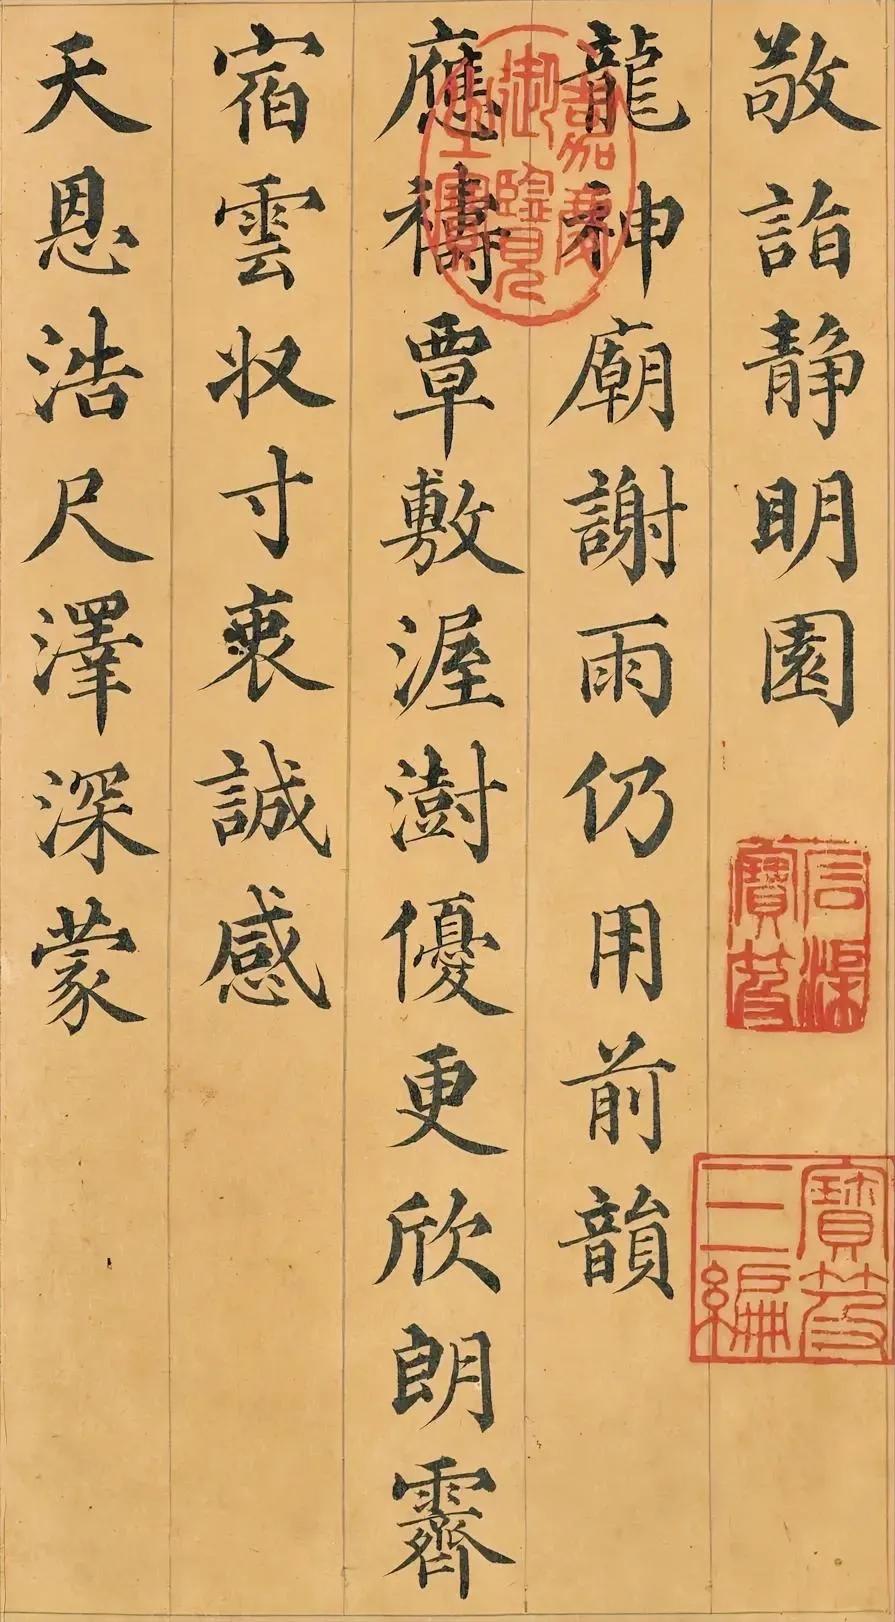 敬詣静明園
龍神廟謝雨仍用前韻
應禱覃敷渥澍優更欣朗霽
宿雲収寸衷誠感
天恩浩尺澤深蒙
嘉慶御覽之寶
寶笈三編